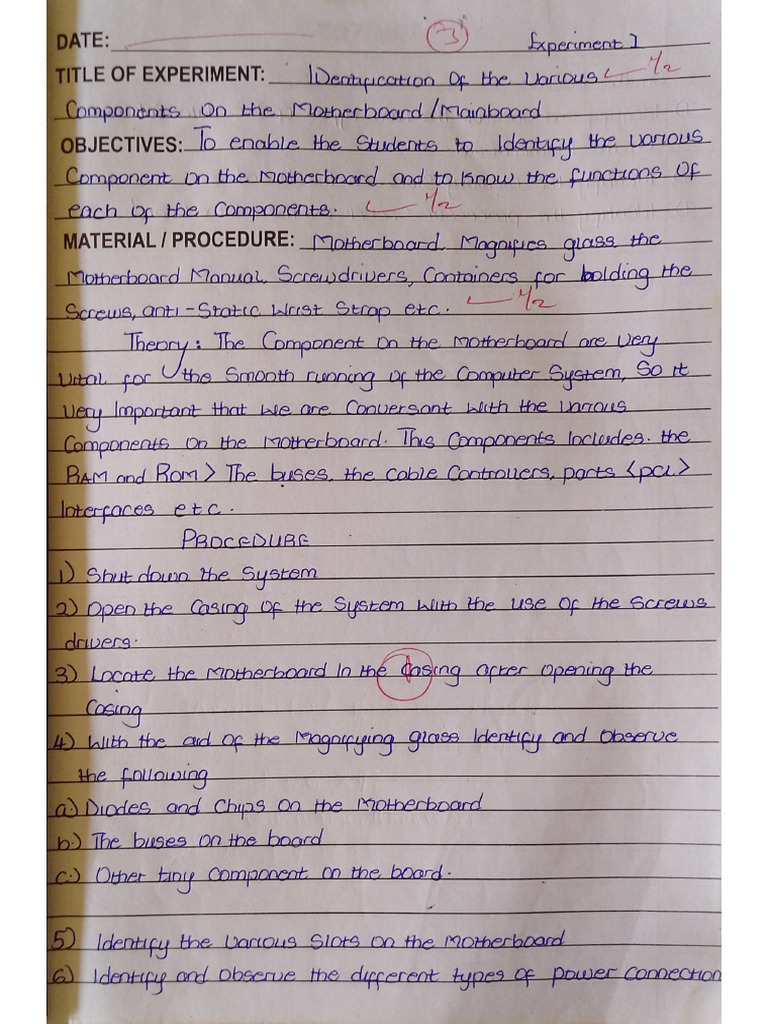 3
DATE: Experiment 1
TITLE OF EXPERIMENT: IDentification Of the Various 1/2
Components On the Motherboard/Mainboard
OBJECTIVES: To enable the Students to Identify the various
Component on the Motherboard and to Know the functions Of
each of the Components. 1/2
MATERIAL / PROCEDURE: Motherboard Magnifies glass the
Motherboard Manual, Screwdrivers, Containers for holding the
Screws, anti-Static Wrist Strap etc. 1/2
Theory: The Component on the Motherboard are very
Vital for the Smooth running of the Computer System, So it
Very Important that We are Conversant With the Various
Components on the Motherboard. This Components Includes. the
RAM and ROM> The buses, the Cable Controllers, parts <PCL>
Interfaces etc.
PROCEDURE
1) Shut down the System
2) Open the Casing Of the System With the use Of the Screws
drivers.
3) Locate the Motherboard In the Casing after Opening the
Casing
4) With the aid of the Magnifying glass Identify and Observe
the following
a.) Diodes and Chips On the Motherboard
b.) The buses on the board
c.) Other tiny Component on the board.
5) Identify the Various Slots on the Motherboard
6) Identify and Observe the different types of power Connection